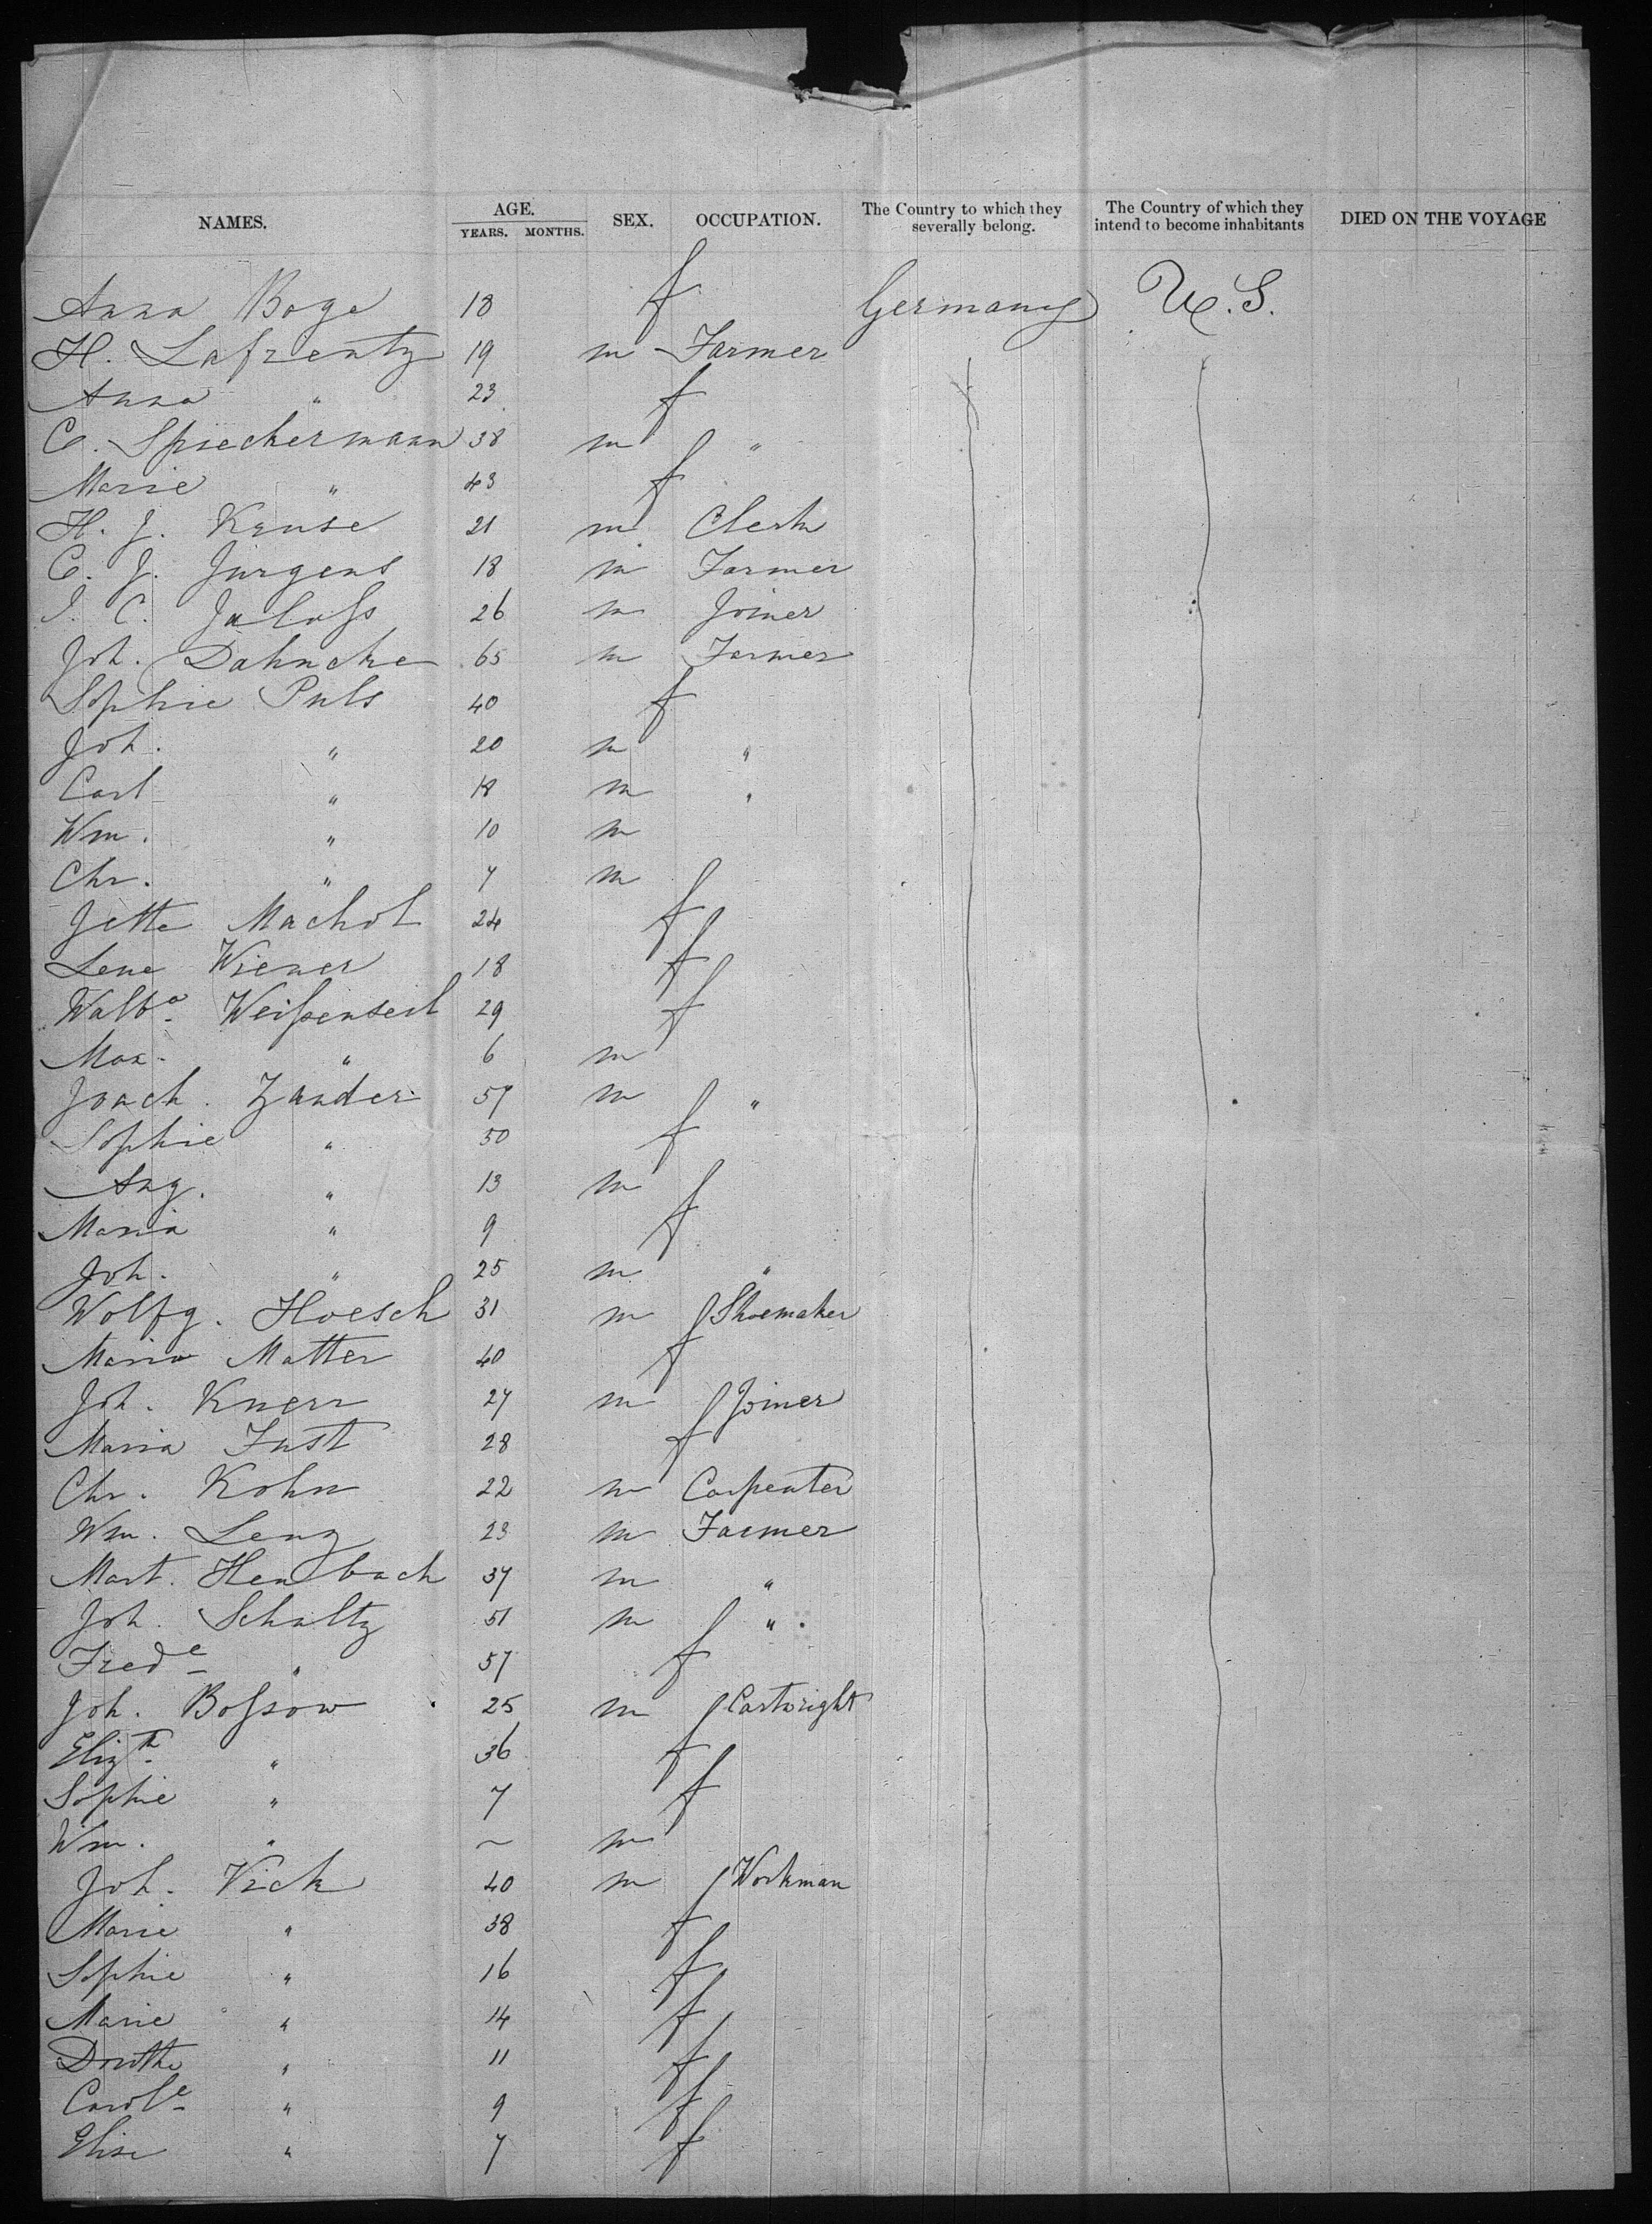 NAMES. AGE. YEARS. MONTHS. SEX. OCCUPATION. The Country to which they severally belong. The Country of which they intend to become inhabitants DIED ON THE VOYAGE
Anna Boge 18 f Germany U.S.
H. Lafrentz 19 m Farmer
Anna " 23 f
C. Spieckermann 38 m "
Marie " 43 f
H. J. Kruse 21 m Clerk
C. J. Jurgens 18 m Farmer
J. C. 26 m Joiner
Joh. Dahncke 65 m Farmer
Sophie Puls 40 f
Joh. " 20 m "
Carl " 18 m "
Wm. " 10 m
Chr. " 7 m
Jette Machol 24 f
Lene Wiener 18 f
Walba Weißenseel 29 f
Max. " 6 m
Joach. Zander 57 m "
Sophie " 50 f
Aug. " 13 m
Maria " 9 f
Joh. " 25 m "
Wolfg. Hoesch 31 m Shoemaker
Maria Matter 40 f
Joh. Knerr 27 m Joiner
Maria Just 28 f
Chr. Kohn 22 m Carpenter
Wm. Lenz 23 m Farmer
Mart. 37 m "
Joh. Schultz 51 m "
Frede " 57 f
Joh. Boßow 25 m Cartwright
Elizth " 36 f
Sophie " 7 f
Wm. " ~ m
Joh. Vick 40 m Workman
Marie " 38 f
Sophie " 16 f
Marie " 14 f
Dorthe " 11 f
Carole " 9 f
Elise " 7 f